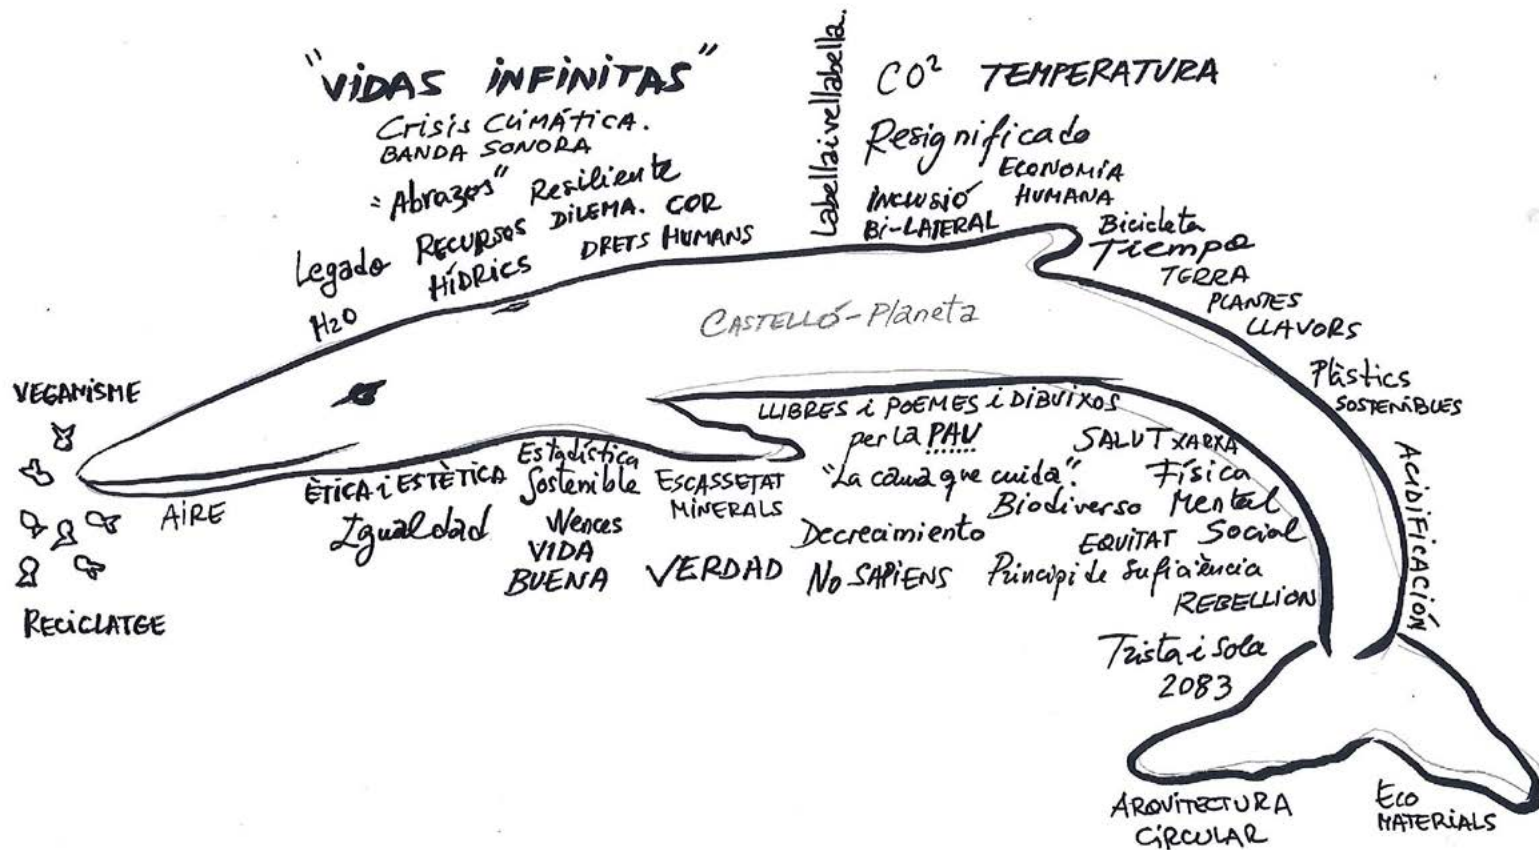 "VIDAS INFINITAS"
Crisis CLIMÁTICA.
BANDA SONORA
"Abrazos" Resiliente
DILEMA. COR
Legado RECURSOS
HÍDRICS
DRETS HUMANS
H2O
Labellaivellabella.
CO² TEMPERATURA
Resignificado
ECONOMÍA
HUMANA
INCLUSIÓ
Bi-LATERAL
Bicicleta
Tiempo
TERRA
PLANTES
LLAVORS
Plàstics
SOSTENIBLES
ACIDIFICACIÓN
CASTELLÓ-Planeta
VEGANISME
RECICLATGE
AIRE
ÈTICA i ESTÈTICA
Igualdad
Estadística
Sostenible
Wences
VIDA
BUENA
ESCASSETAT
MINERALS
VERDAD
LLIBRES i POEMES i DIBUIXOS
per la PAU
"La cama que cuida".
Decrecimiento
NO SAPIENS
SALUT XARXA
Física
Biodiverso Mental
EQUITAT Social
Principi de Suficiència
REBELLION
Trista i Sola
2083
ARQUITECTURA
CIRCULAR
ECO
MATERIALS